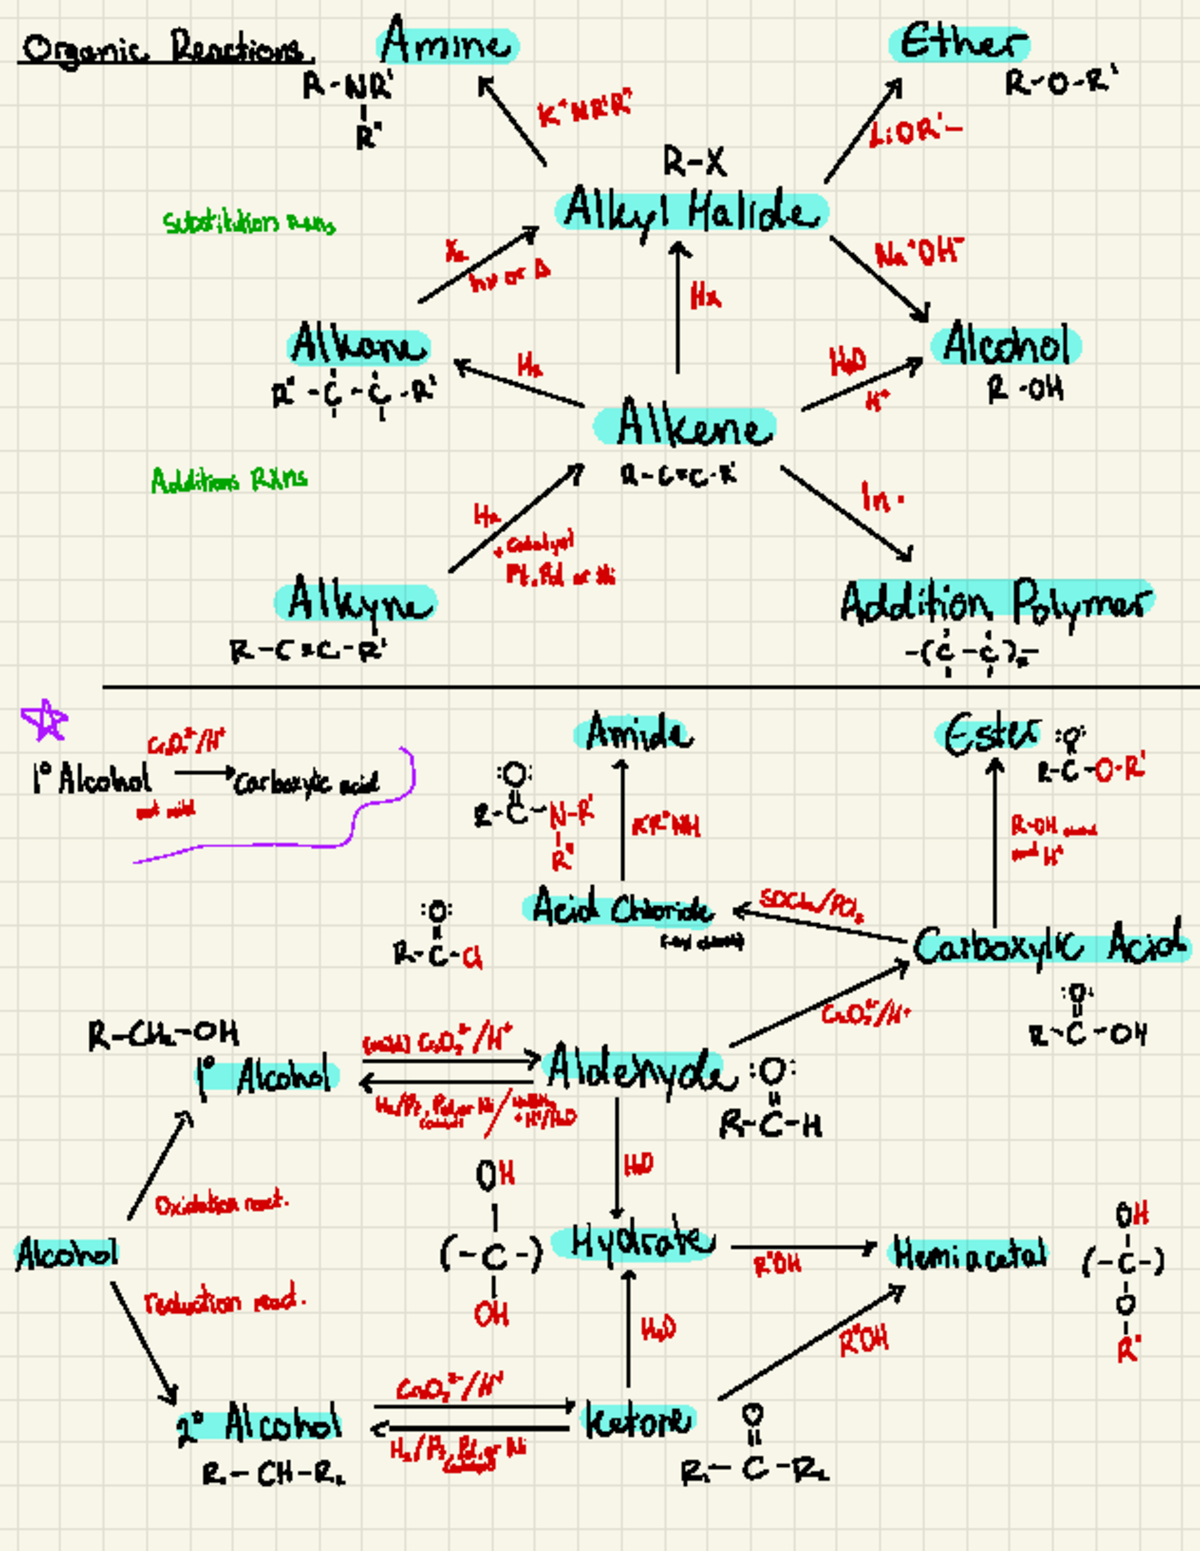 Organic Reactions.
Amine
R-NR'
R"
K⁺NR'R"
Ether
R-O-R'
LiOR'-
R-X
Alkyl Halide
Substitution Rxns
X₂
hν or Δ
Hx
Na⁺OH⁻
Alkane
R"-C-C-R'
H₂
H₂O
H⁺
Alcohol
R-OH
Alkene
R-C=C-R'
Additions RXNs
H₂
+ Catalyst
Pt, Pd or Ni
In·
Alkyne
R-C≡C-R'
Addition Polymer
-(C-C)ₓ-
1° Alcohol
Cr₂O₇²⁻/H⁺
not mild
Carboxylic acid
Amide
:O:
R-C-N-R'
R"
R'R"NH
Ester
:O:
R-C-O-R'
R-OH
and H⁺
Acid Chloride
:O:
R-C-Cl
SOCl₂/PCl₃
Carboxylic Acid
:O:
R-C-OH
Cr₂O₇²⁻/H⁺
R-CH₂-OH
1° Alcohol
(mild) Cr₂O₇²⁻/H⁺
H₂/Pt, Pd, or Ni
catalyst
NaBH₄
+ H⁺/H₂O
Aldehyde
:O:
R-C-H
H₂O
Oxidation react.
Alcohol
reduction react.
OH
(-C-)
OH
Hydrate
R"OH
Hemiacetal
OH
(-C-)
O
R"
H₂O
R"OH
2° Alcohol
R₁-CH-R₂
Cr₂O₇²⁻/H⁺
H₂/Pt, Pd, or Ni
catalyst
Ketone
O
R₁-C-R₂